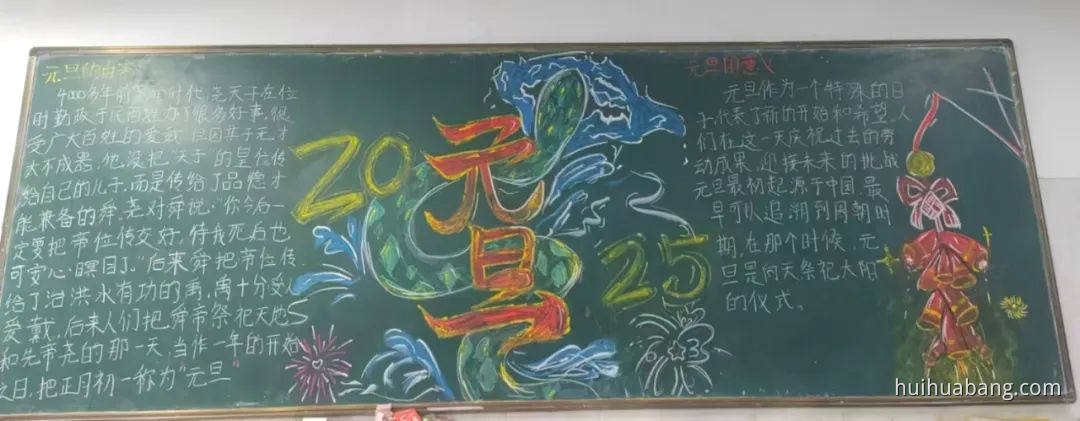 元旦的由来
4000多年前 时代,尧天子在位
时勤政于民 办了很多好事,很
受广大百姓的爱戴,但因其子无才
太不成器,他没把"天子"的皇位传
给自己的儿子,而是传给了品德才
能兼备的舜,尧对舜说:"你今后一
定要把帝位传交好,待我死后也
可安心瞑目了。"后来舜把帝位传
给了治洪水有功的禹,禹十分受人
爱戴,后来人们把舜帝祭祀天地
和先帝尧的那一天,当作一年的开始
之日,把正月初一称为"元旦"
20
元
旦
25
元旦 意义
元旦作为一个特殊的日
子,代表了新的开始和希望,人
们在这一天庆祝过去的劳
动成果,迎接未来的挑战
元旦最初起源于中国,最
早可以追溯到周朝时
期,在那个时候,元
旦是向天祭祀太阳
的仪式。
huihuabang.com